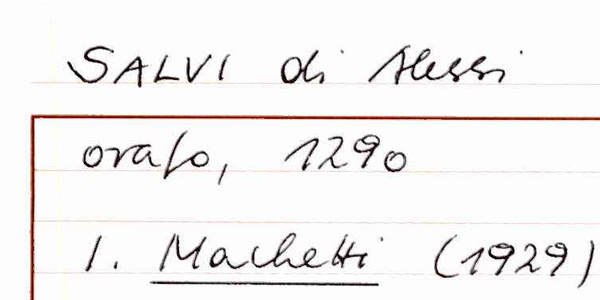 SALVI di Alessi
orafo, 1290
1. Machetti (1929)